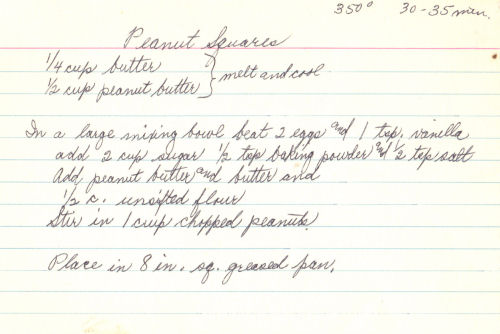 350° 30-35 min.
Peanut Squares
1/4 cup butter
1/2 cup peanut butter } melt and cool
In a large mixing bowl beat 2 eggs and 1 tsp. vanilla
add 2 cup sugar 1/2 tsp baking powder and 1/2 tsp salt
Add peanut butter and butter and
1/2 c. unsifted flour
Stir in 1 cup chopped peanuts.
Place in 8 in. sq. greased pan.